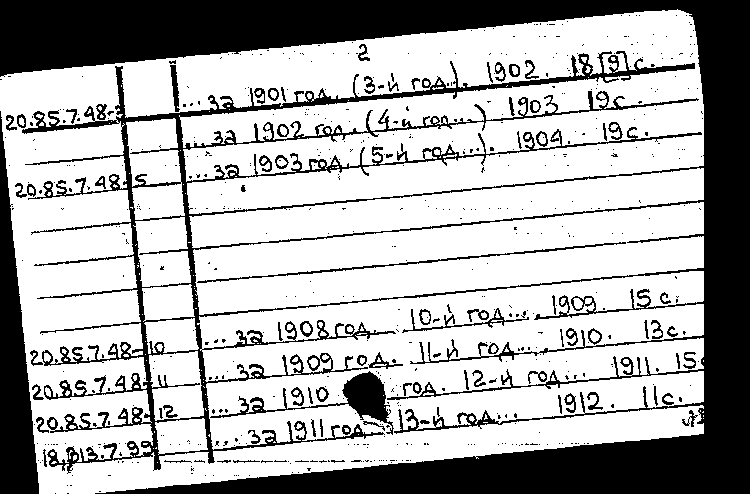 2
20.85.7.48-3 ... за 1901 год. (3-й год.). 1902. 18[9]с.
... за 1902 год. (4-й год...) 1903 19с.
20.85.7.48-5 ... за 1903 год. (5-й год...). 1904. 19с.
20.85.7.48-10 ... за 1908 год. 10-й год... 1909. 15с.
20.85.7.48-11 ... за 1909 год. 11-й год... 1910. 13с.
20.85.7.48-12 ... за 1910 год. 12-й год... 1911. 15с
13.7.99 ... за 1911 год 13-й год... 1912. 11с.